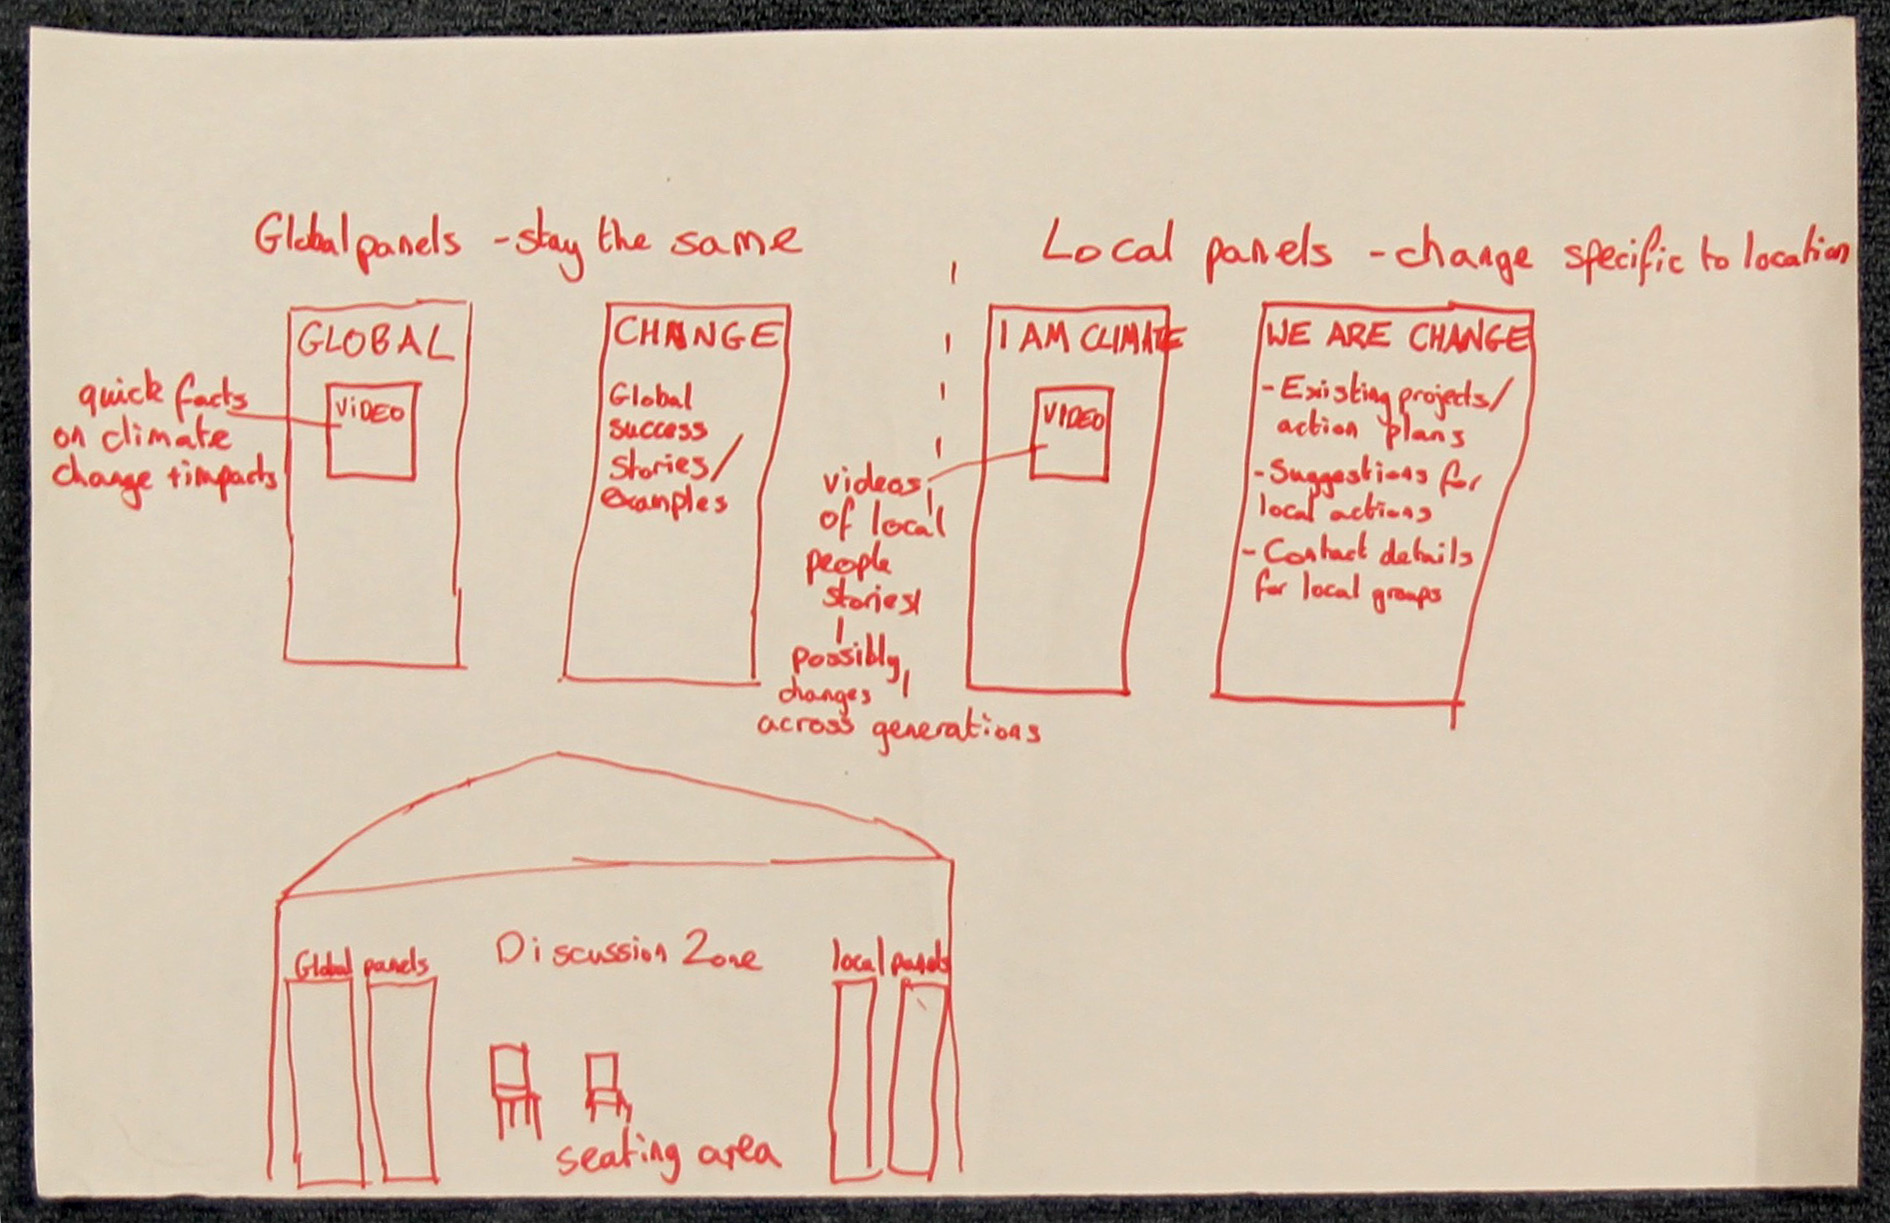 Global panels - stay the same
Local panels - change specific to location
GLOBAL
VIDEO
quick facts
on climate
change + impacts
CHANGE
Global
success
stories/
examples
I AM CLIMATE
VIDEO
videos
of local
people
stories/
possibly
changes
across generations
WE ARE CHANGE
- Existing projects/
action plans
- Suggestions for
local actions
- Contact details
for local groups
Global panels
Discussion Zone
local panels
seating area